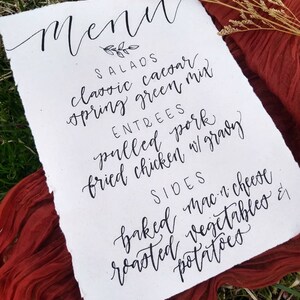 Menu
SALADS
classic caesar
spring green mix
ENTREES
pulled pork
fried chicken w/ gravy
SIDES
baked mac-n-cheese
roasted vegetables &
potatoes